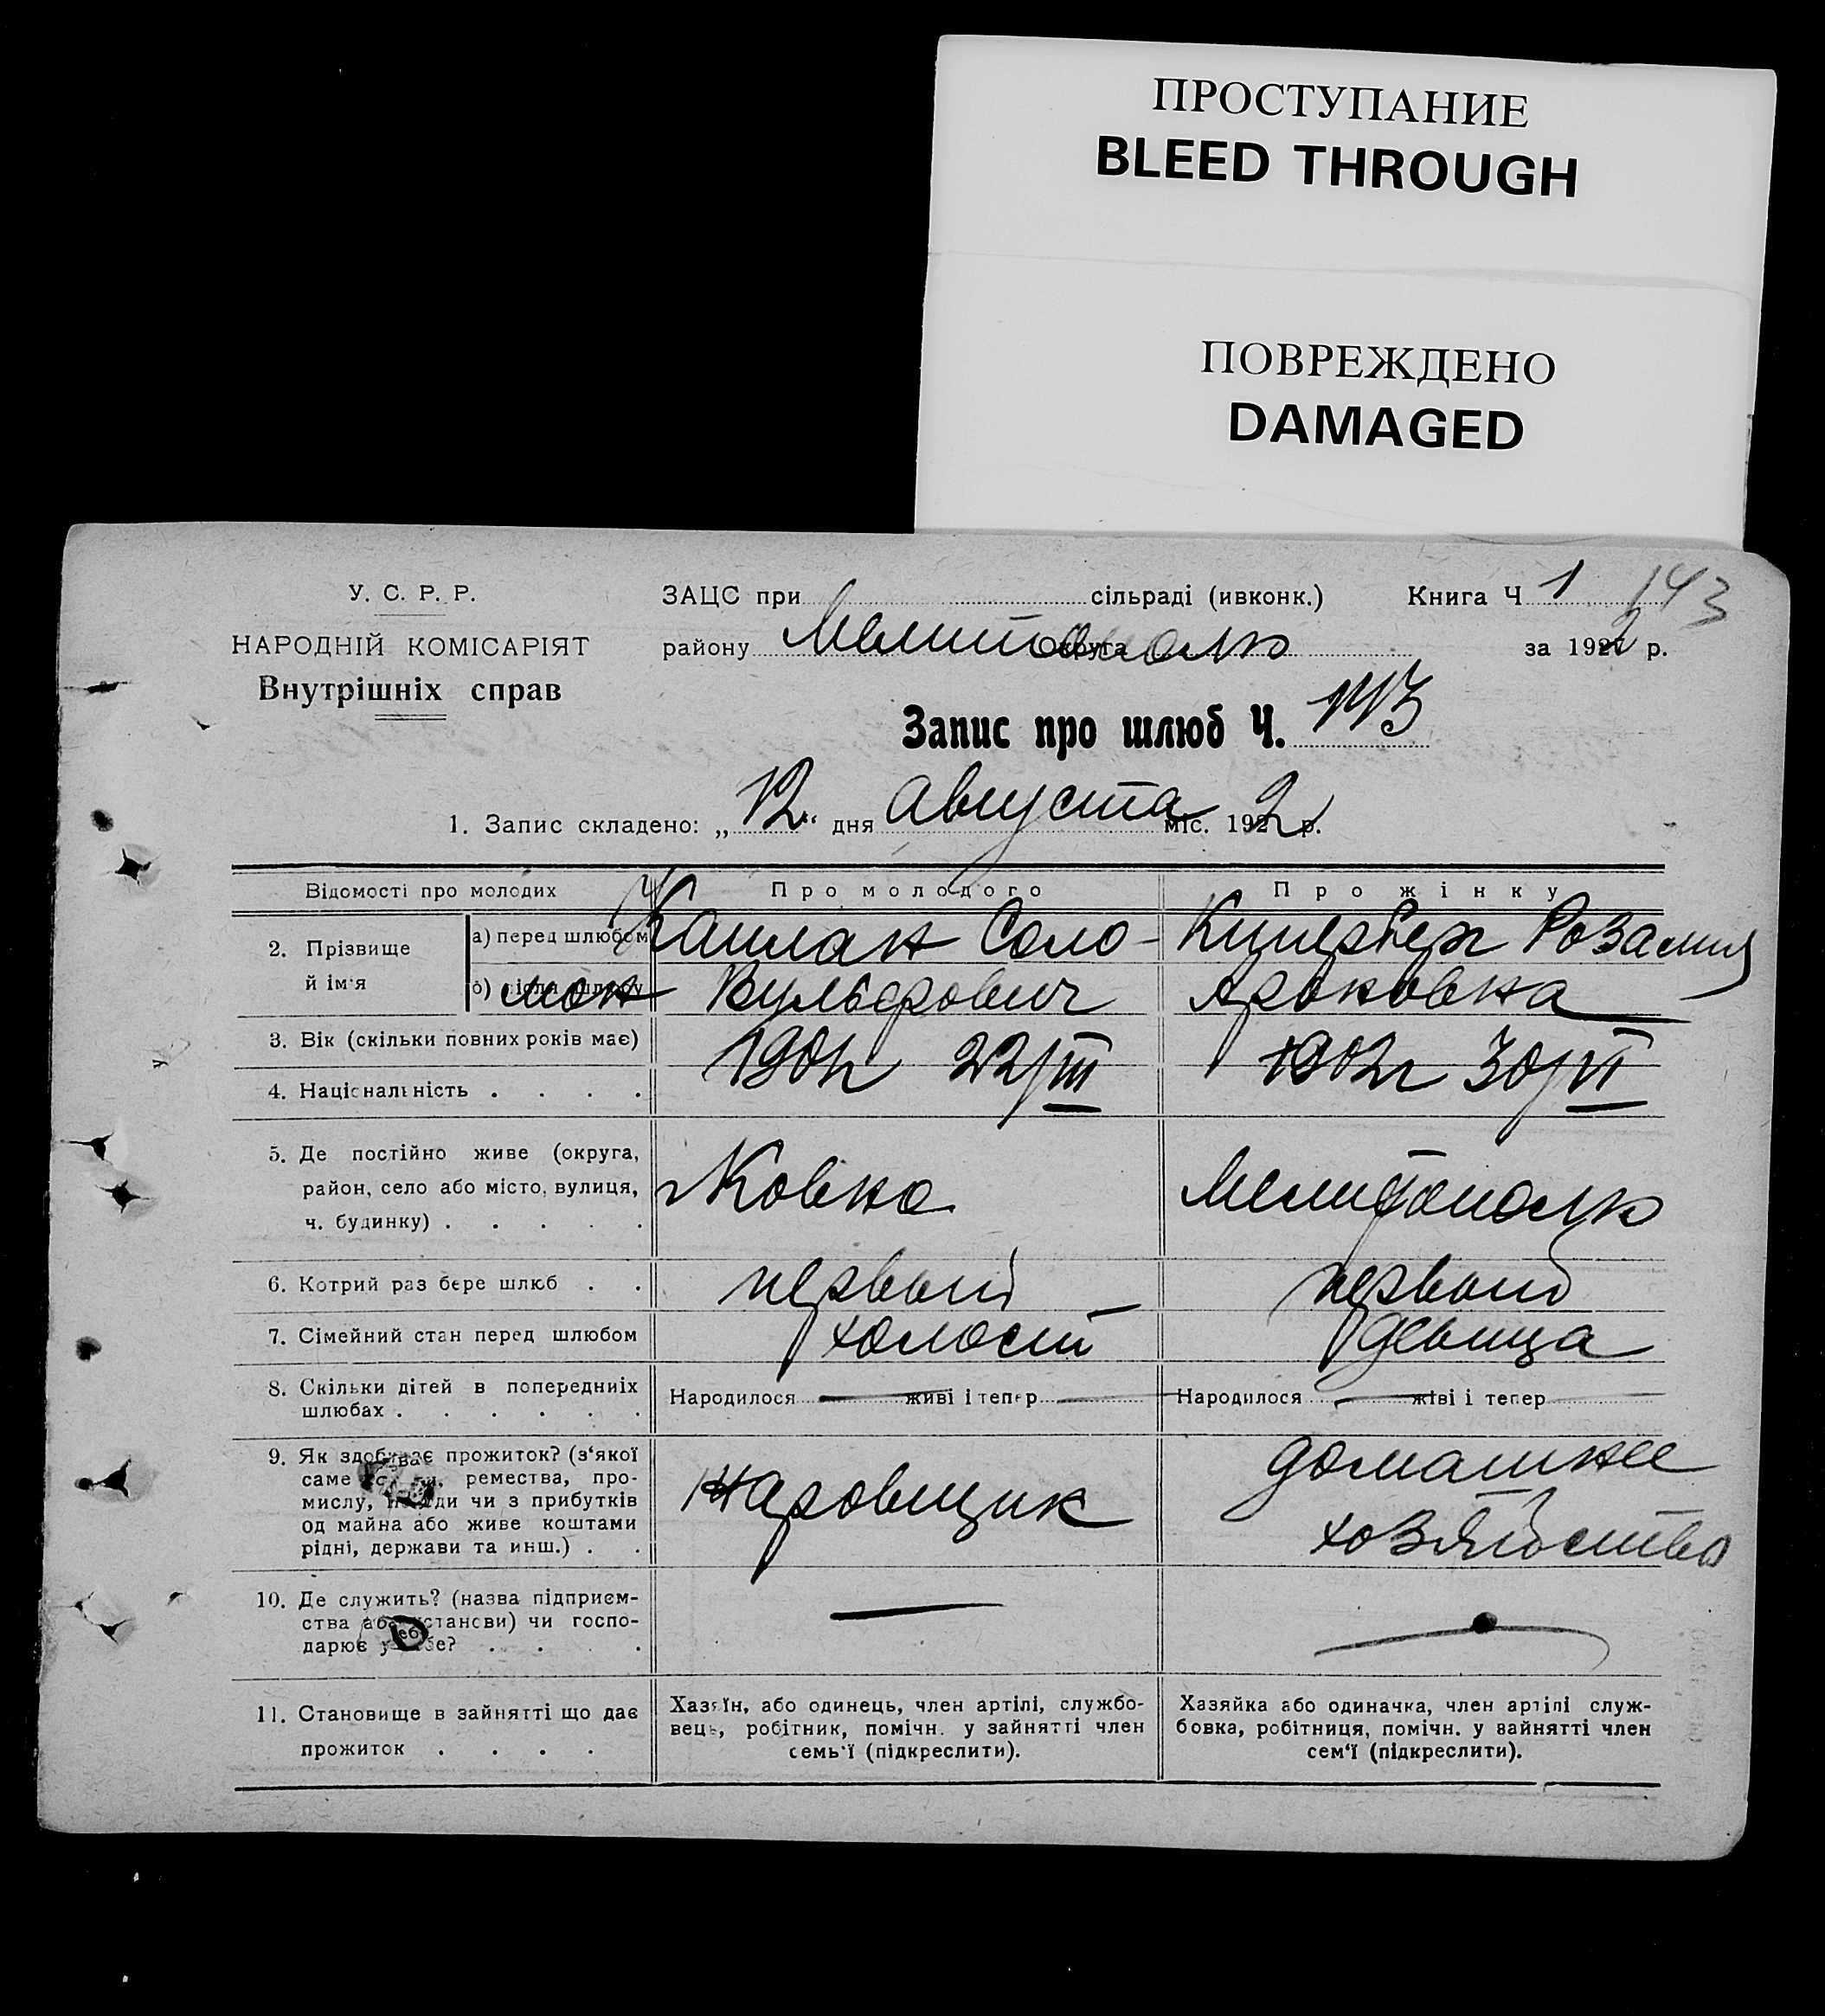 ПРОСТУПАНИЕ
BLEED THROUGH
ПОВРЕЖДЕНО
DAMAGED
У. С. Р. Р.
НАРОДНІЙ КОМІСАРІЯТ
Внутрішніх справ
ЗАЦС при сільраді (ивконк.) Книга Ч 1 143
району Мелитополь Округа за 1922 р.
Запис про шлюб Ч. 143
1. Запис складено: „12“ дня Августа міс. 1922 р.
Відомості про молодих Про молодого Про жінку
2. Прізвище й ім'я
а) перед шлюбом Каплан Соло-
б) після шлюбу мон Вульфович
Роза
Ароновна
3. Вік (скільки повних років має)
4. Національність . . . .
1901г 22/III 1902г 30/VI
5. Де постійно живе (округа,
район, село або місто, вулиця,
ч. будинку) . . . . .
г Ковно Мелитополь
6. Котрий раз бере шлюб . . первый первый
7. Сімейний стан перед шлюбом холост девица
8. Скільки дітей в попередниіх
шлюбах . . . . . .
Народилося — живі і тепер — Народилося — жіві і тепер
9. Як здобуває прожиток? (з'якої
саме ремества, про-
мислу, чи з прибутків
од майна або живе коштами
рідні, держави та инш.) . .
домашнее
хозяйство
10. Де служить? (назва підприєм-
ства або установи) чи госпо-
дарює у себе? . . . —
11. Становище в зайнятті що дає
прожиток . . . .
Хазяїн, або одинець, член артілі, службо-
вець, робітник, помічн. у зайнятті член
семь'ї (підкреслити).
Хазяйка або одиначка, член артілі служ-
бовка, робітниця, помічн. у зайнятті член
сем'ї (підкреслити).